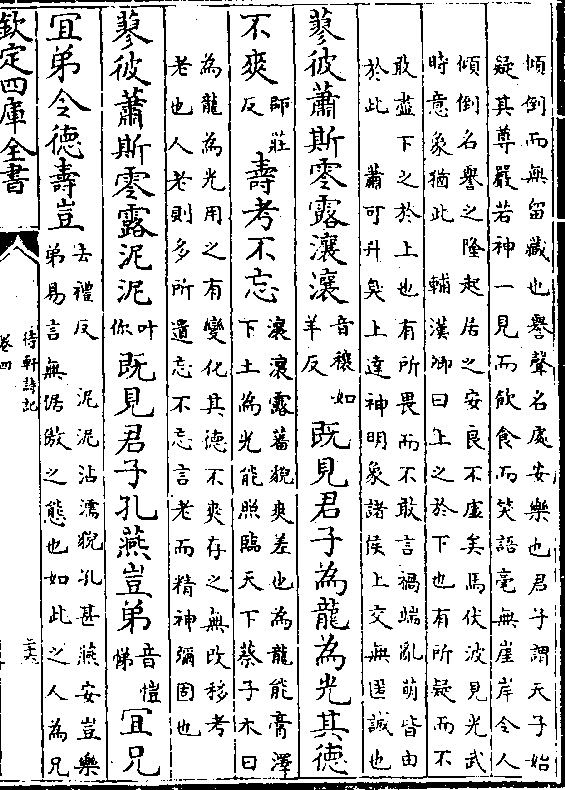 傾倒而無留藏也譽聲名處安樂也君子謂天子始
疑其尊嚴若神一見而飲食而笑語毫無崖岸令人
傾倒名譽之隆起居之安良不虛矣馬伏波見光武
時意象猶此　輔漢卿曰上之於下也有所疑而不
敢盡下之於上也有所畏而不敢言禍端亂萌皆由
於此　蕭可升矣上達神明象諸侯上交無匿誠也
蓼彼蕭斯零露瀼瀼音穰如羊反既見君子為龍為光其德
不爽師莊反壽考不忘瀼瀼露蕃貌爽差也為龍能膏澤
下土為光能照臨天下蔡子木曰
為龍為光用之有變化其德不爽存之無改移考
老也人老則多所遺忘不忘言老而精神彌固也
蓼彼蕭斯零露泥泥叶你既見君子孔燕豈弟音愷悌宜兄
宜弟令德壽豈去禮反　泥泥沾濡貌孔甚燕安豈樂
弟易言無倨傲之態也如此之人為兄
欽定四庫全書
待軒詩記
卷四